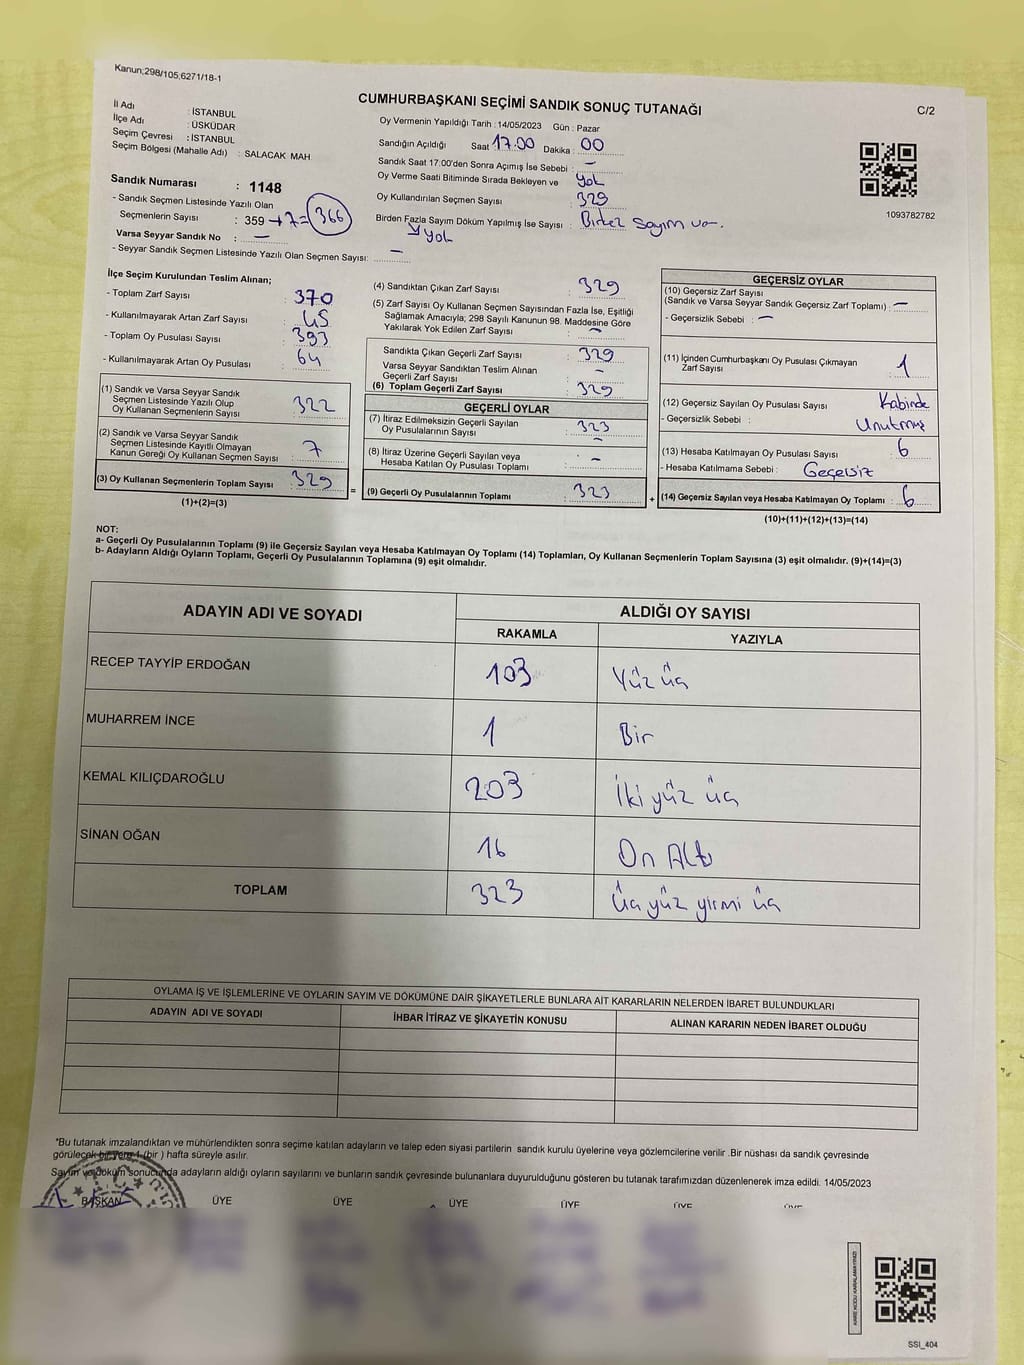 Kanun;298/105,6271/18-1
CUMHURBAŞKANI SEÇİMİ SANDIK SONUÇ TUTANAĞI
C/2
İl Adı : İSTANBUL
İlçe Adı : ÜSKÜDAR
Seçim Çevresi : İSTANBUL
Seçim Bölgesi (Mahalle Adı) : SALACAK MAH
Oy Vermenin Yapıldığı Tarih : 14/05/2023 Gün : Pazar
Sandığın Açıldığı Saat 17.00 Dakika : 00
Sandık Saat 17:00'den Sonra Açımış İse Sebebi : —
Oy Verme Saati Bitiminde Sırada Bekleyen ve Yok
Oy Kullandırılan Seçmen Sayısı : 329
Birden Fazla Sayım Döküm Yapılmış İse Sayısı : Birkez Sayım var.
Yok
1093782782
Sandık Numarası : 1148
- Sandık Seçmen Listesinde Yazılı Olan
Seçmenlerin Sayısı : 359 + 7 = 366
Varsa Seyyar Sandık No : —
- Seyyar Sandık Seçmen Listesinde Yazılı Olan Seçmen Sayısı: —
İlçe Seçim Kurulundan Teslim Alınan;
- Toplam Zarf Sayısı : 370
- Kullanılmayarak Artan Zarf Sayısı : 45
- Toplam Oy Pusulası Sayısı : 393
- Kullanılmayarak Artan Oy Pusulası : 64
(1) Sandık ve Varsa Seyyar Sandık
Seçmen Listesinde Yazılı Olup
Oy Kullanan Seçmenlerin Sayısı : 322
(2) Sandık ve Varsa Seyyar Sandık
Seçmen Listesinde Kayıtlı Olmayan
Kanun Gereği Oy Kullanan Seçmen Sayısı : 7
(3) Oy Kullanan Seçmenlerin Toplam Sayısı : 329
(1)+(2)=(3)
(4) Sandıktan Çıkan Zarf Sayısı : 329
(5) Zarf Sayısı Oy Kullanan Seçmen Sayısından Fazla İse, Eşitliği
Sağlamak Amacıyla; 298 Sayılı Kanunun 98. Maddesine Göre
Yakılarak Yok Edilen Zarf Sayısı : —
Sandıkta Çıkan Geçerli Zarf Sayısı : 329
Varsa Seyyar Sandıktan Teslim Alınan
Geçerli Zarf Sayısı : —
(6) Toplam Geçerli Zarf Sayısı : 329
GEÇERLİ OYLAR
(7) İtiraz Edilmeksizin Geçerli Sayılan
Oy Pusulalarının Sayısı : 323
(8) İtiraz Üzerine Geçerli Sayılan veya
Hesaba Katılan Oy Pusulası Toplamı : —
= (9) Geçerli Oy Pusulalarının Toplamı : 323
GEÇERSİZ OYLAR
(10) Geçersiz Zarf Sayısı
(Sandık ve Varsa Seyyar Sandık Geçersiz Zarf Toplamı) : —
- Geçersizlik Sebebi : —
(11) İçinden Cumhurbaşkanı Oy Pusulası Çıkmayan
Zarf Sayısı : 1
(12) Geçersiz Sayılan Oy Pusulası Sayısı : Kabinde
- Geçersizlik Sebebi : Unutmuş
(13) Hesaba Katılmayan Oy Pusulası Sayısı : 6
- Hesaba Katılmama Sebebi : Geçersiz
+ (14) Geçersiz Sayılan veya Hesaba Katılmayan Oy Toplamı : 6
(10)+(11)+(12)+(13)=(14)
NOT:
a- Geçerli Oy Pusulalarının Toplamı (9) ile Geçersiz Sayılan veya Hesaba Katılmayan Oy Toplamı (14) Toplamları, Oy Kullanan Seçmenlerin Toplam Sayısına (3) eşit olmalıdır. (9)+(14)=(3)
b- Adayların Aldığı Oyların Toplamı, Geçerli Oy Pusulalarının Toplamına (9) eşit olmalıdır.
ADAYIN ADI VE SOYADI ALDIĞI OY SAYISI
RAKAMLA YAZIYLA
RECEP TAYYİP ERDOĞAN 103 Yüz üç
MUHARREM İNCE 1 Bir
KEMAL KILIÇDAROĞLU 203 İki yüz üç
SİNAN OĞAN 16 On Altı
TOPLAM 323 Üç yüz yirmi üç
OYLAMA İŞ VE İŞLEMLERİNE VE OYLARIN SAYIM VE DÖKÜMÜNE DAİR ŞİKAYETLERLE BUNLARA AİT KARARLARIN NELERDEN İBARET BULUNDUKLARI
ADAYIN ADI VE SOYADI İHBAR İTİRAZ VE ŞİKAYETİN KONUSU ALINAN KARARIN NEDEN İBARET OLDUĞU
*Bu tutanak imzalandıktan ve mühürlendikten sonra seçime katılan adayların ve talep eden siyasi partilerin sandık kurulu üyelerine veya gözlemcilerine verilir .Bir nüshası da sandık çevresinde
görülecek bir yere 1 (bir ) hafta süreyle asılır.
Sayım ve döküm sonucunda adayların aldığı oyların sayılarını ve bunların sandık çevresinde bulunanlara duyurulduğunu gösteren bu tutanak tarafımızdan düzenlenerek imza edildi. 14/05/2023
BAŞKAN ÜYE ÜYE ÜYE ÜYE ÜYE ÜYE
SSI_404